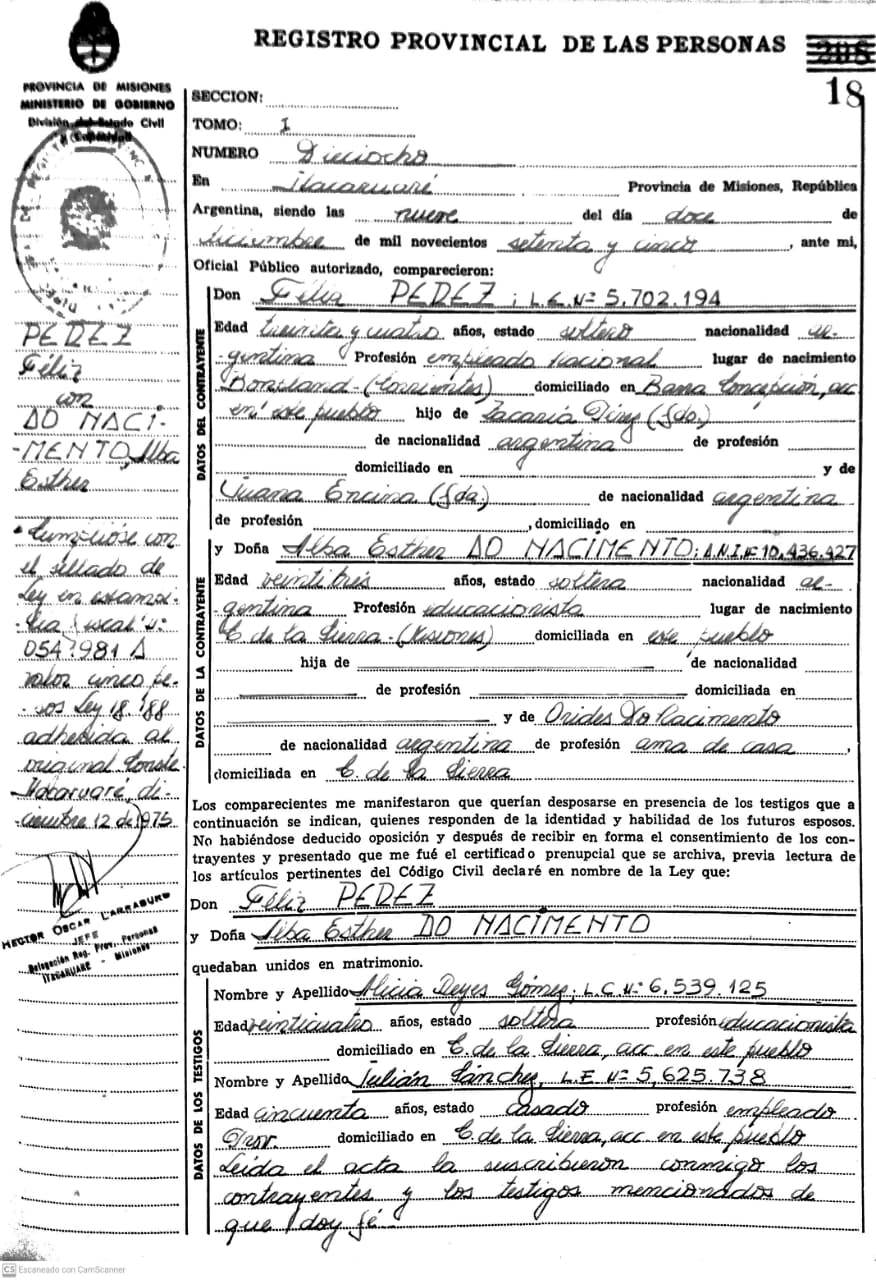 REGISTRO PROVINCIAL DE LAS PERSONAS
208
18
PROVINCIA DE MISIONES
MINISTERIO DE GOBIERNO
División del Estado Civil
y Capacidad
SECCION:
TOMO: I
NUMERO Dieciocho
En Itacaruaré Provincia de Misiones, República
Argentina, siendo las nueve del día doce de
diciembre de mil novecientos setenta y cinco, ante mi,
Oficial Público autorizado, comparecieron:
DATOS DEL CONTRAYENTE
Don Félix PEREZ; L.E. Nº 5.702.194
Edad treinta y cuatro años, estado soltero nacionalidad ar-
-gentina Profesión empleado nacional lugar de nacimiento
Bonpland-(Corrientes) domiciliado en Barra Concepción, acc
en este pueblo hijo de Zacaria (fdo.)
de nacionalidad argentina de profesión
domiciliado en y de
Juana Encina (fda.) de nacionalidad argentina
de profesión , domiciliado en
DATOS DE LA CONTRAYENTE
y Doña Alba Esther DO NACIMENTO; D.N.I. Nº 10.436.427
Edad veintitrés años, estado soltera nacionalidad ar-
-gentina Profesión educacionista lugar de nacimiento
C. de la Sierra-(Misiones) domiciliada en este pueblo
hija de de nacionalidad
de profesión domiciliada en
y de Orides Do Nacimento
de nacionalidad argentina de profesión ama de casa,
domiciliada en C. de la Sierra
Los comparecientes me manifestaron que querían desposarse en presencia de los testigos que a
continuación se indican, quienes responden de la identidad y habilidad de los futuros esposos.
No habiéndose deducido oposición y después de recibir en forma el consentimiento de los con-
trayentes y presentado que me fué el certificado prenupcial que se archiva, previa lectura de
los artículos pertinentes del Código Civil declaré en nombre de la Ley que:
Don Félix PEREZ
y Doña Alba Esther DO NACIMENTO
quedaban unidos en matrimonio.
DATOS DE LOS TESTIGOS
Nombre y Apellido Alicia Reyes Gómez; L.C. Nº 6.539.125
Edad veinticuatro años, estado soltera profesión educacionista
domiciliado en C. de la Sierra, acc en este pueblo
Nombre y Apellido Julián Sánchez, L.E. Nº 5,625.738
Edad cincuenta años, estado casado profesión empleado
Prov. domiciliado en C. de la Sierra, acc en este pueblo
Leída el acta la suscribieron conmigo los
contrayentes y los testigos mencionados de
que doy fé
PEREZ
Félix
con
DO NACI-
-MENTO, Alba
Esther
Cumplióse con
el sellado de
Ley en estampi-
-lla fiscal Nº
054?981 A
valor cinco pe-
-sos Ley 18.188
adherida al
original. Conste
Itacaruaré, di-
-ciembre 12 de 1975
HECTOR OSCAR LARRABURU
JEFE
Delegación Reg. Prov. Personas
ITACARUARE - Misiones
CS Escaneado con CamScanner